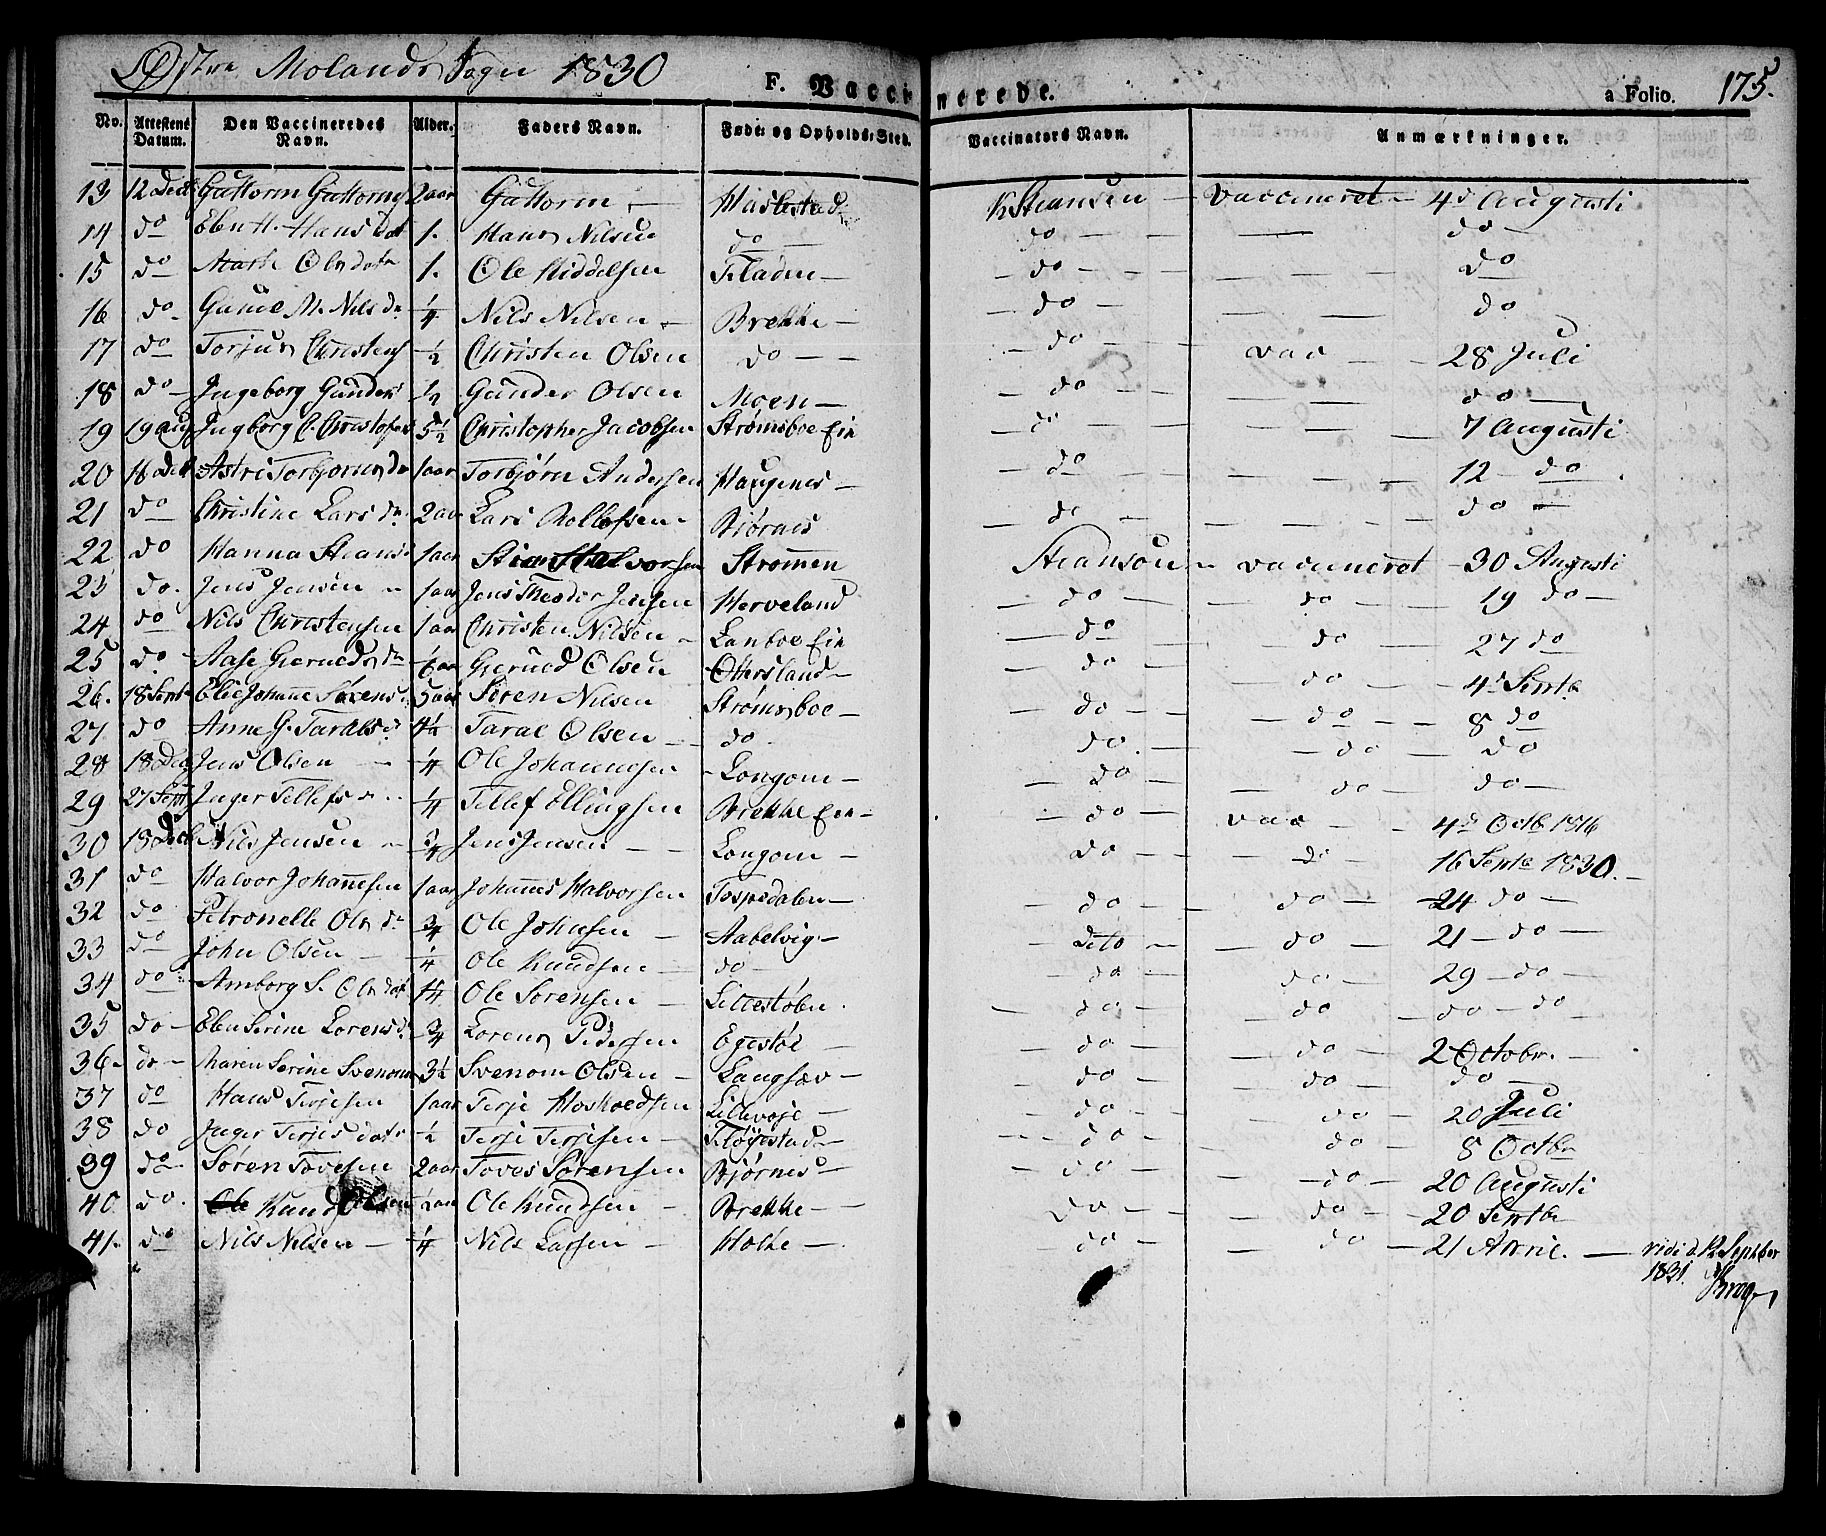 Østre Molands Sogn 1830 F. Vaccinerede. a Folio. 175.
No. Attestens Datum. Den Vaccineredes Navn. Alder. Faders Navn. Føde- og Opholds-Sted. Vaccinators Navn. Anmærkninger.
13 12 Decb Guttorm Guttorms 2 aar Guttorm — Haslestad Steansen — vaccineret — 4d Augusti
14 do Elen H. Hans dat 1. Hans Nilsen do — do — — — do —
15 do Marte Ols datr 1. Ole Kiddelsen Fladen — — do — — do
16 do Gunil M. Nils dr 1/4 Nils Nilsen — Brekke — do — — do
17 do Torjus Christens 1/2 Christen Olsen do — — — do — — vac — — 28 Juli
18 do — Ingeborg Gunders 1/2 Gunder Olsen Moen — — do — — — do —
19 19 aug Ingborg C. Christofers 5 1/2 Christopher Jacobsen Strømsboe Eie — do — — — 7 Augusti
20 18 Decb Astri Torbjørns dr 1 aar Torbjørn Andersen Haugenes — — do — — — 12 — do
21 do Christine Lars dr 2 aar Lars Rollefsen Bjørnes — do — — — do —
22 do Hanna Steans 1 aar Stian Halvorsen Strømmen Steansøn — vaccineret — 30 Augusti
23 do. Jens Jensen — 1 aar Jens Theodor Jensen Herveland — do — — do — — 19 do —
24 do Nils Christensen 1 aar Christen Nilsen — Lanboe Eie — do — do — 27 do
25 do — Aase Gierueds dr 1/6 aar Gierued Olsen Ottersland — — do — — do — — 4d Septb
26. 18 Septr Elie Johanne Sørens 5 aar Søren Nilsen Strømsboe — — do — — do — — 8 do
27 do Anne G. Taralsd 4 1/2 Taral Olsen — — do — do. — — do — do
28 18 Dec Jens Olsen — 1/4 Ole Johannesen Longom — — do — — do — do —
29 27 Septr Inger Tellefs dr — 1/4 Tellef Ellingsen Brekke Eie — — do — vac — — 4d Octb 1816
30 18 Decb Nils Jensen — 3/4 Jens Jensen — — Longom — do — — — do — 16 Septb 1830. —
31 do Halvor Johannesen 1 aar Johannes Halvorsen Tospedalen — — do — — do — 24 do —
32 do Petronelle Ols dr 3/4 Ole Johnsen — Aabelvig — — Dito — — do — 21 — do —
33 do John Olsen — 1/4 Ole Knudsen — do — — do — do — 29 — do —
34 do Amborg S. Ols dat 1 1/4 Ole Sørensen — Lillestølen. — do — — do — do — do
35 do — Elen Serine Lorens d 3/4 Lorens Pedersen Egestøl — — do — — do — 2 Octobr. —
36 — do — Maren Serine Svenoms 3 1/2 Svenom Olsen — Langsæv — — do — — do — do —
37 do Hans Terjesen 1 aar Terje Hoskoldsen Lillevøje — — do — do — 20 Juli
38 do Inger Terjes datr 1/2 Terje Terjesen — Fløystad — — do — do — 8 Octbr
39 do — Søren Tovesen 2 aar Toves Sørensen Bjørnes — — do — — do — 20 Augusti
40 do. Knud Olsen 1/2 aar Ole Knudsen — Brekke — — do — — do — 20 Septbr
41 — do Nils Nilsen — 1/4 Nils Larsen — Holte — — do — — do — 21 April. — vidi d. 12 Septbber
1831. Krog